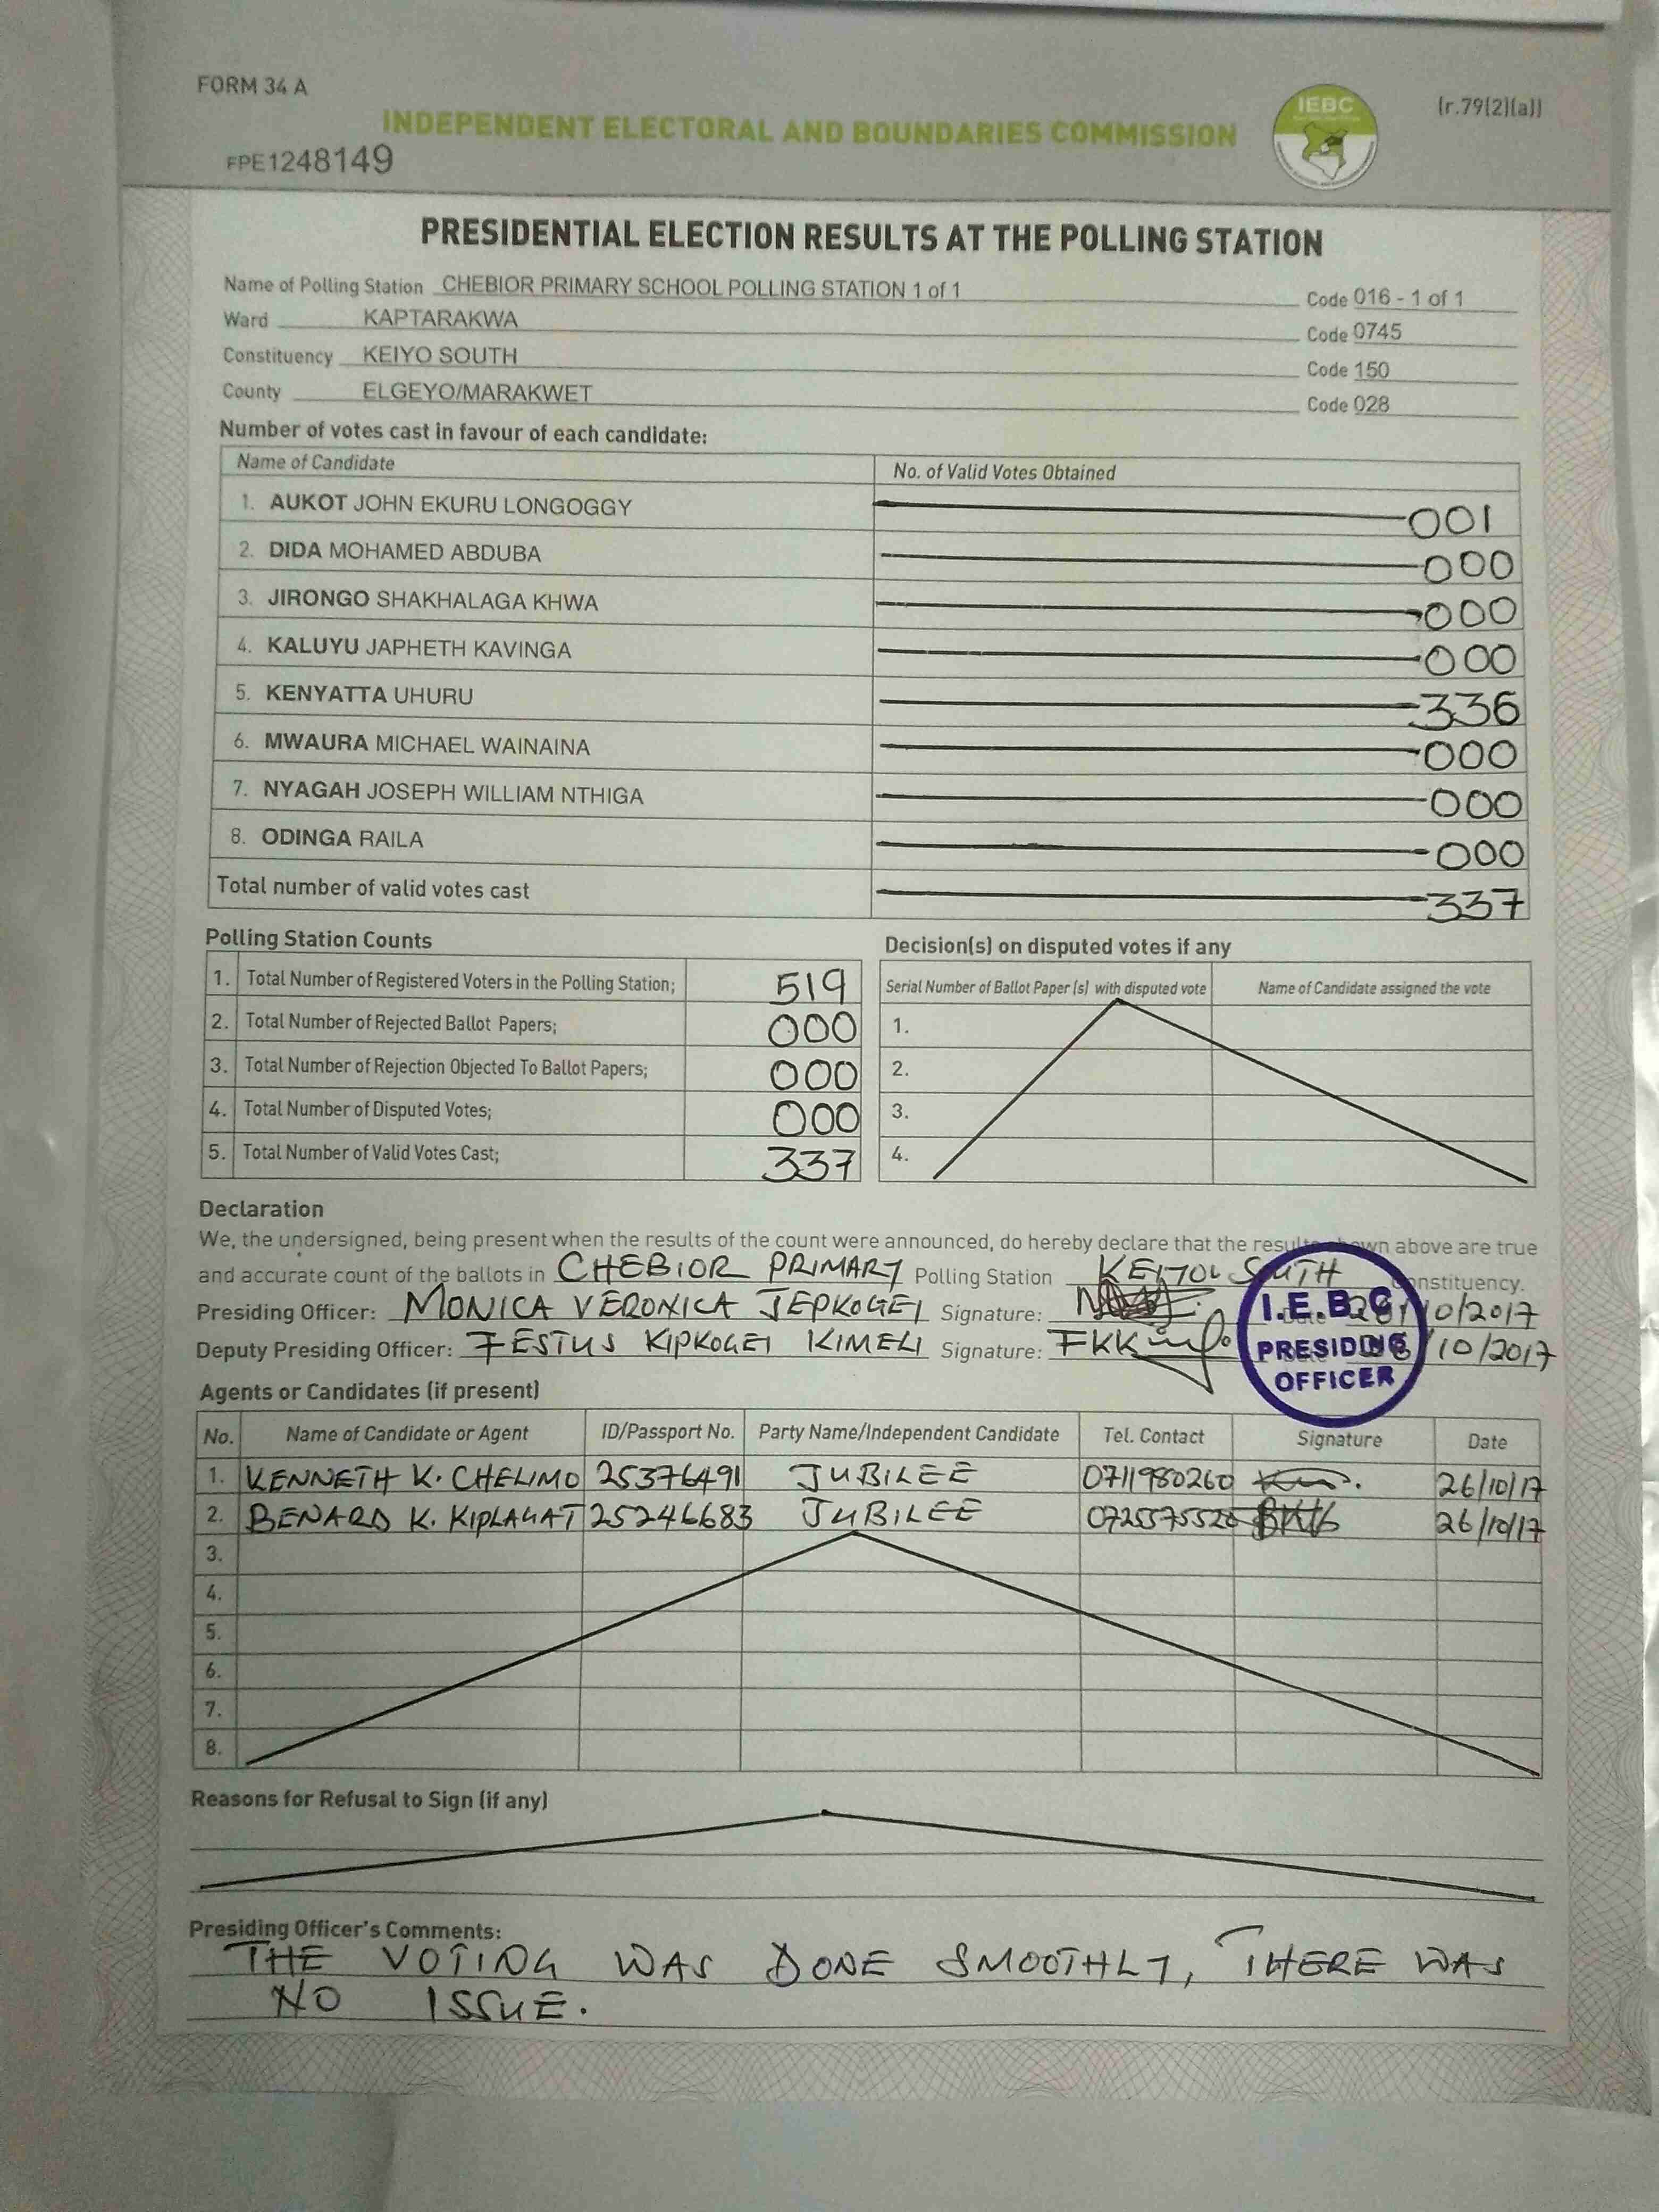 FORM 34 A
INDEPENDENT ELECTORAL AND BOUNDARIES COMMISSION
IEBC
(r.79(2)(a))
FPE1248149
PRESIDENTIAL ELECTION RESULTS AT THE POLLING STATION
Name of Polling Station CHEBIOR PRIMARY SCHOOL POLLING STATION 1 of 1 Code 016 - 1 of 1
Ward KAPTARAKWA Code 0745
Constituency KEIYO SOUTH Code 150
County ELGEYO/MARAKWET Code 028
Number of votes cast in favour of each candidate:
Name of Candidate No. of Valid Votes Obtained
1. AUKOT JOHN EKURU LONGOGGY 001
2. DIDA MOHAMED ABDUBA 000
3. JIRONGO SHAKHALAGA KHWA 000
4. KALUYU JAPHETH KAVINGA 000
5. KENYATTA UHURU 336
6. MWAURA MICHAEL WAINAINA 000
7. NYAGAH JOSEPH WILLIAM NTHIGA 000
8. ODINGA RAILA 000
Total number of valid votes cast 337
Polling Station Counts
1. Total Number of Registered Voters in the Polling Station; 519
2. Total Number of Rejected Ballot Papers; 000
3. Total Number of Rejection Objected To Ballot Papers; 000
4. Total Number of Disputed Votes; 000
5. Total Number of Valid Votes Cast; 337
Decision(s) on disputed votes if any
Serial Number of Ballot Paper (s) with disputed vote Name of Candidate assigned the vote
1.
2.
3.
4.
Declaration
We, the undersigned, being present when the results of the count were announced, do hereby declare that the above are true
and accurate count of the ballots in CHEBIOR PRIMARY Polling Station SOUTH Constituency.
Presiding Officer: MONICA VERONICA JEPKOGEI Signature: /10/2017
Deputy Presiding Officer: FESTUS KIPKOGEI KIMELI Signature: /10/2017
I.E.B.C
PRESIDING
OFFICER
Agents or Candidates (if present)
No. Name of Candidate or Agent ID/Passport No. Party Name/Independent Candidate Tel. Contact Signature Date
1. KENNETH K. CHELIMO 25376491 JUBILEE 0711980260 26/10/17
2. BENARD K. KIPLAGAT 25246683 JUBILEE 26/10/17
3.
4.
5.
6.
7.
8.
Reasons for Refusal to Sign (if any)
Presiding Officer's Comments:
THE VOTING WAS DONE SMOOTHLY, THERE WAS
NO ISSUE.